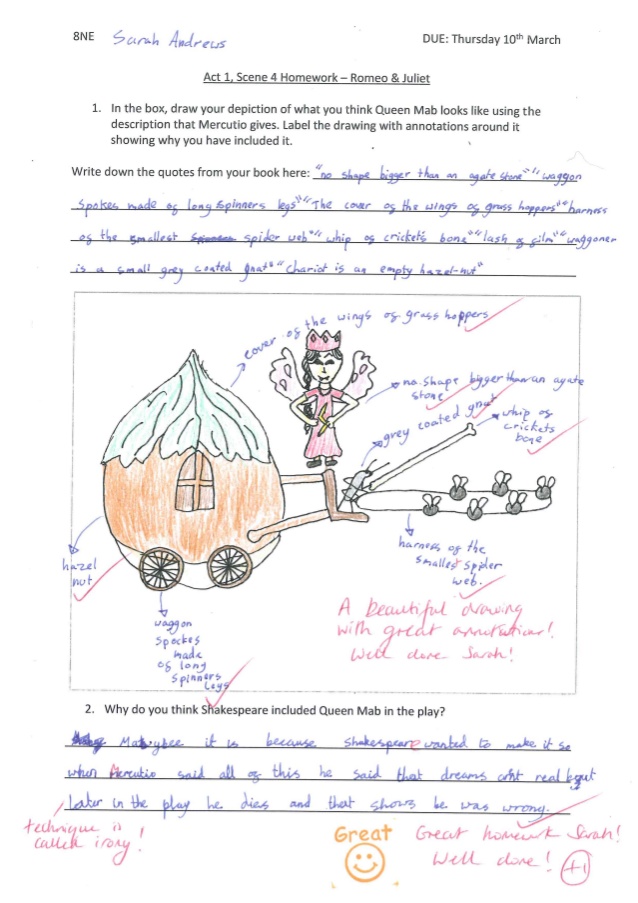 8NE Sarah Andrews DUE: Thursday 10th March
Act 1, Scene 4 Homework – Romeo & Juliet
1. In the box, draw your depiction of what you think Queen Mab looks like using the
description that Mercutio gives. Label the drawing with annotations around it
showing why you have included it.
Write down the quotes from your book here: "no shape bigger than an agate stone" "waggon
spokes made of long spinners legs" "The cover of the wings of grass hoppers" "harness
of the smallest spider web" "whip of crickets bone" "lash of film" "waggoner
is a small grey coated gnat" "chariot is an empty hazel-nut"
cover of the wings of grass hoppers
no shape bigger than an agate
stone
grey coated gnat
whip of
crickets
bone
harness of the
smallest spider
web.
hazel
nut
waggon
spockes
made
of long
spinners
legs
A beautiful drawing
with great annotations!
Well done Sarah!
2. Why do you think Shakespeare included Queen Mab in the play?
it is because Shakespeare wanted to make it so
when Mercutio said all of this he said that dreams real but
Later in the play he dies and that shows he was wrong.
technique is
called irony!
Great
Great homework Sarah!
Well done! +1